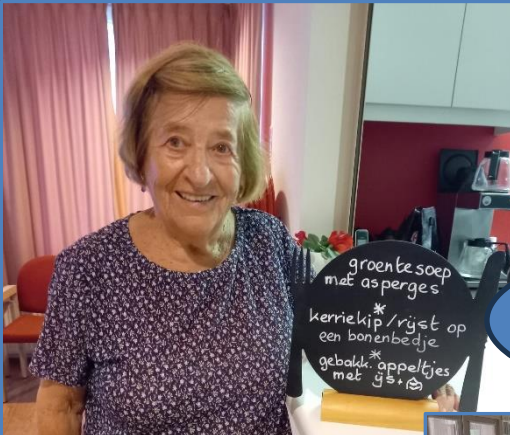 groentesoep
met asperges
*
kerriekip/rijst op
een bonenbedje
*
gebakk. appeltjes
met ijs+